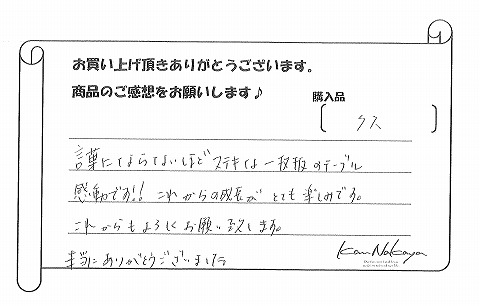 お買い上げ頂きありがとうございます。
商品のご感想をお願いします♪
購入品
クス
言葉にならないほどステキな一枚板のテーブル
感動です!! これからの成長がとても楽しみです。
これからもよろしくお願い致します。
本当にありがとうございました
Kan Nakaya